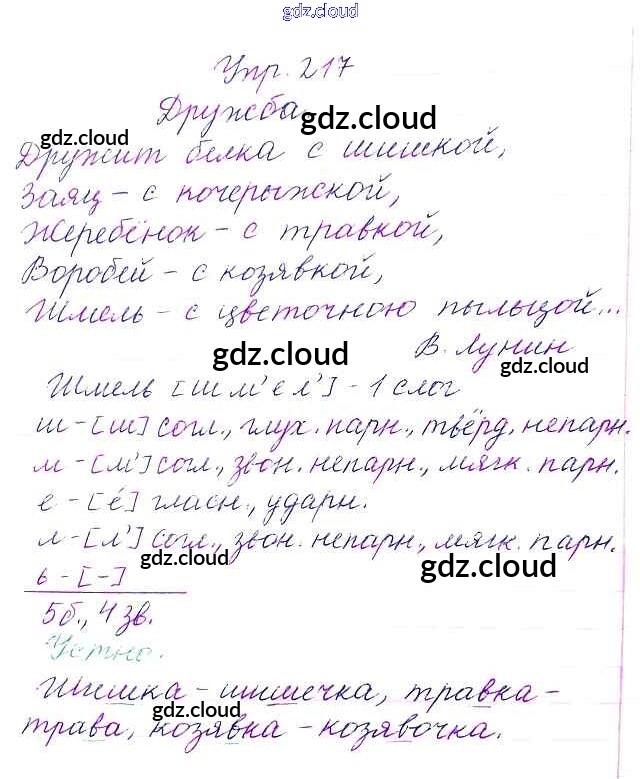 gdz.cloud
Упр. 217
Дружба.
gdz.cloud
gdz.cloud
Дружит белка с шишкой,
Заяц - с кочерыжской,
gdz.cloud
Жеребёнок - с травкой,
Воробей - с козявкой,
Шмель - с цветочною пыльцой...
gdz.cloud
В. Лунин
gdz.cloud
Шмель [ш м' е л'] - 1 слог
ш - [ш] согл., глух. парн., твёрд. непарн.
м - [м'] согл., звон. непарн., мягк. парн.
е - [é] гласн., ударн.
л - [л'] согл., звон. непарн., мягк. парн.
gdz.cloud
gdz.cloud
ь - [-]
5б., 4 зв.
Устно.
Шишка - шишечка, травка -
gdz.cloud
трава, козявка - козявочка.